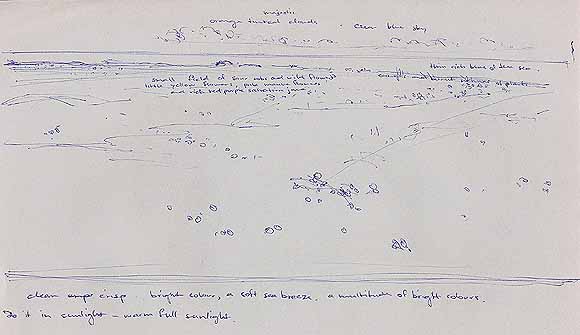 majestic
orange tinted clouds - clear blue sky
thin rich blue of sea
small field of and wild flowers
little yellow flowers, pink flowers
and rich red purple
of plants
clean crisp. bright colour, a soft sea breeze. a multitude of bright colours.
Do it in sunlight - warm full sunlight.